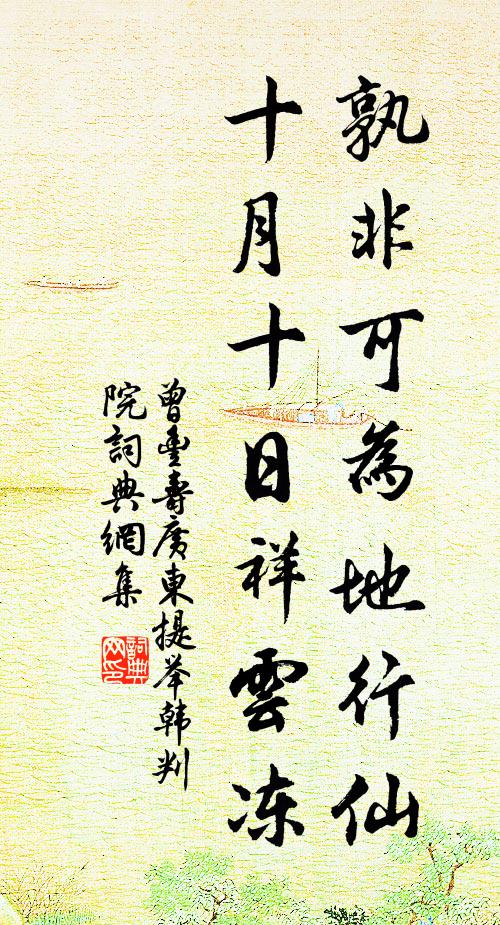 孰非可為地行仙
十月十日祥雲冻
曾豊壽廣東提举韩判
院詞典網集
詞典
网印